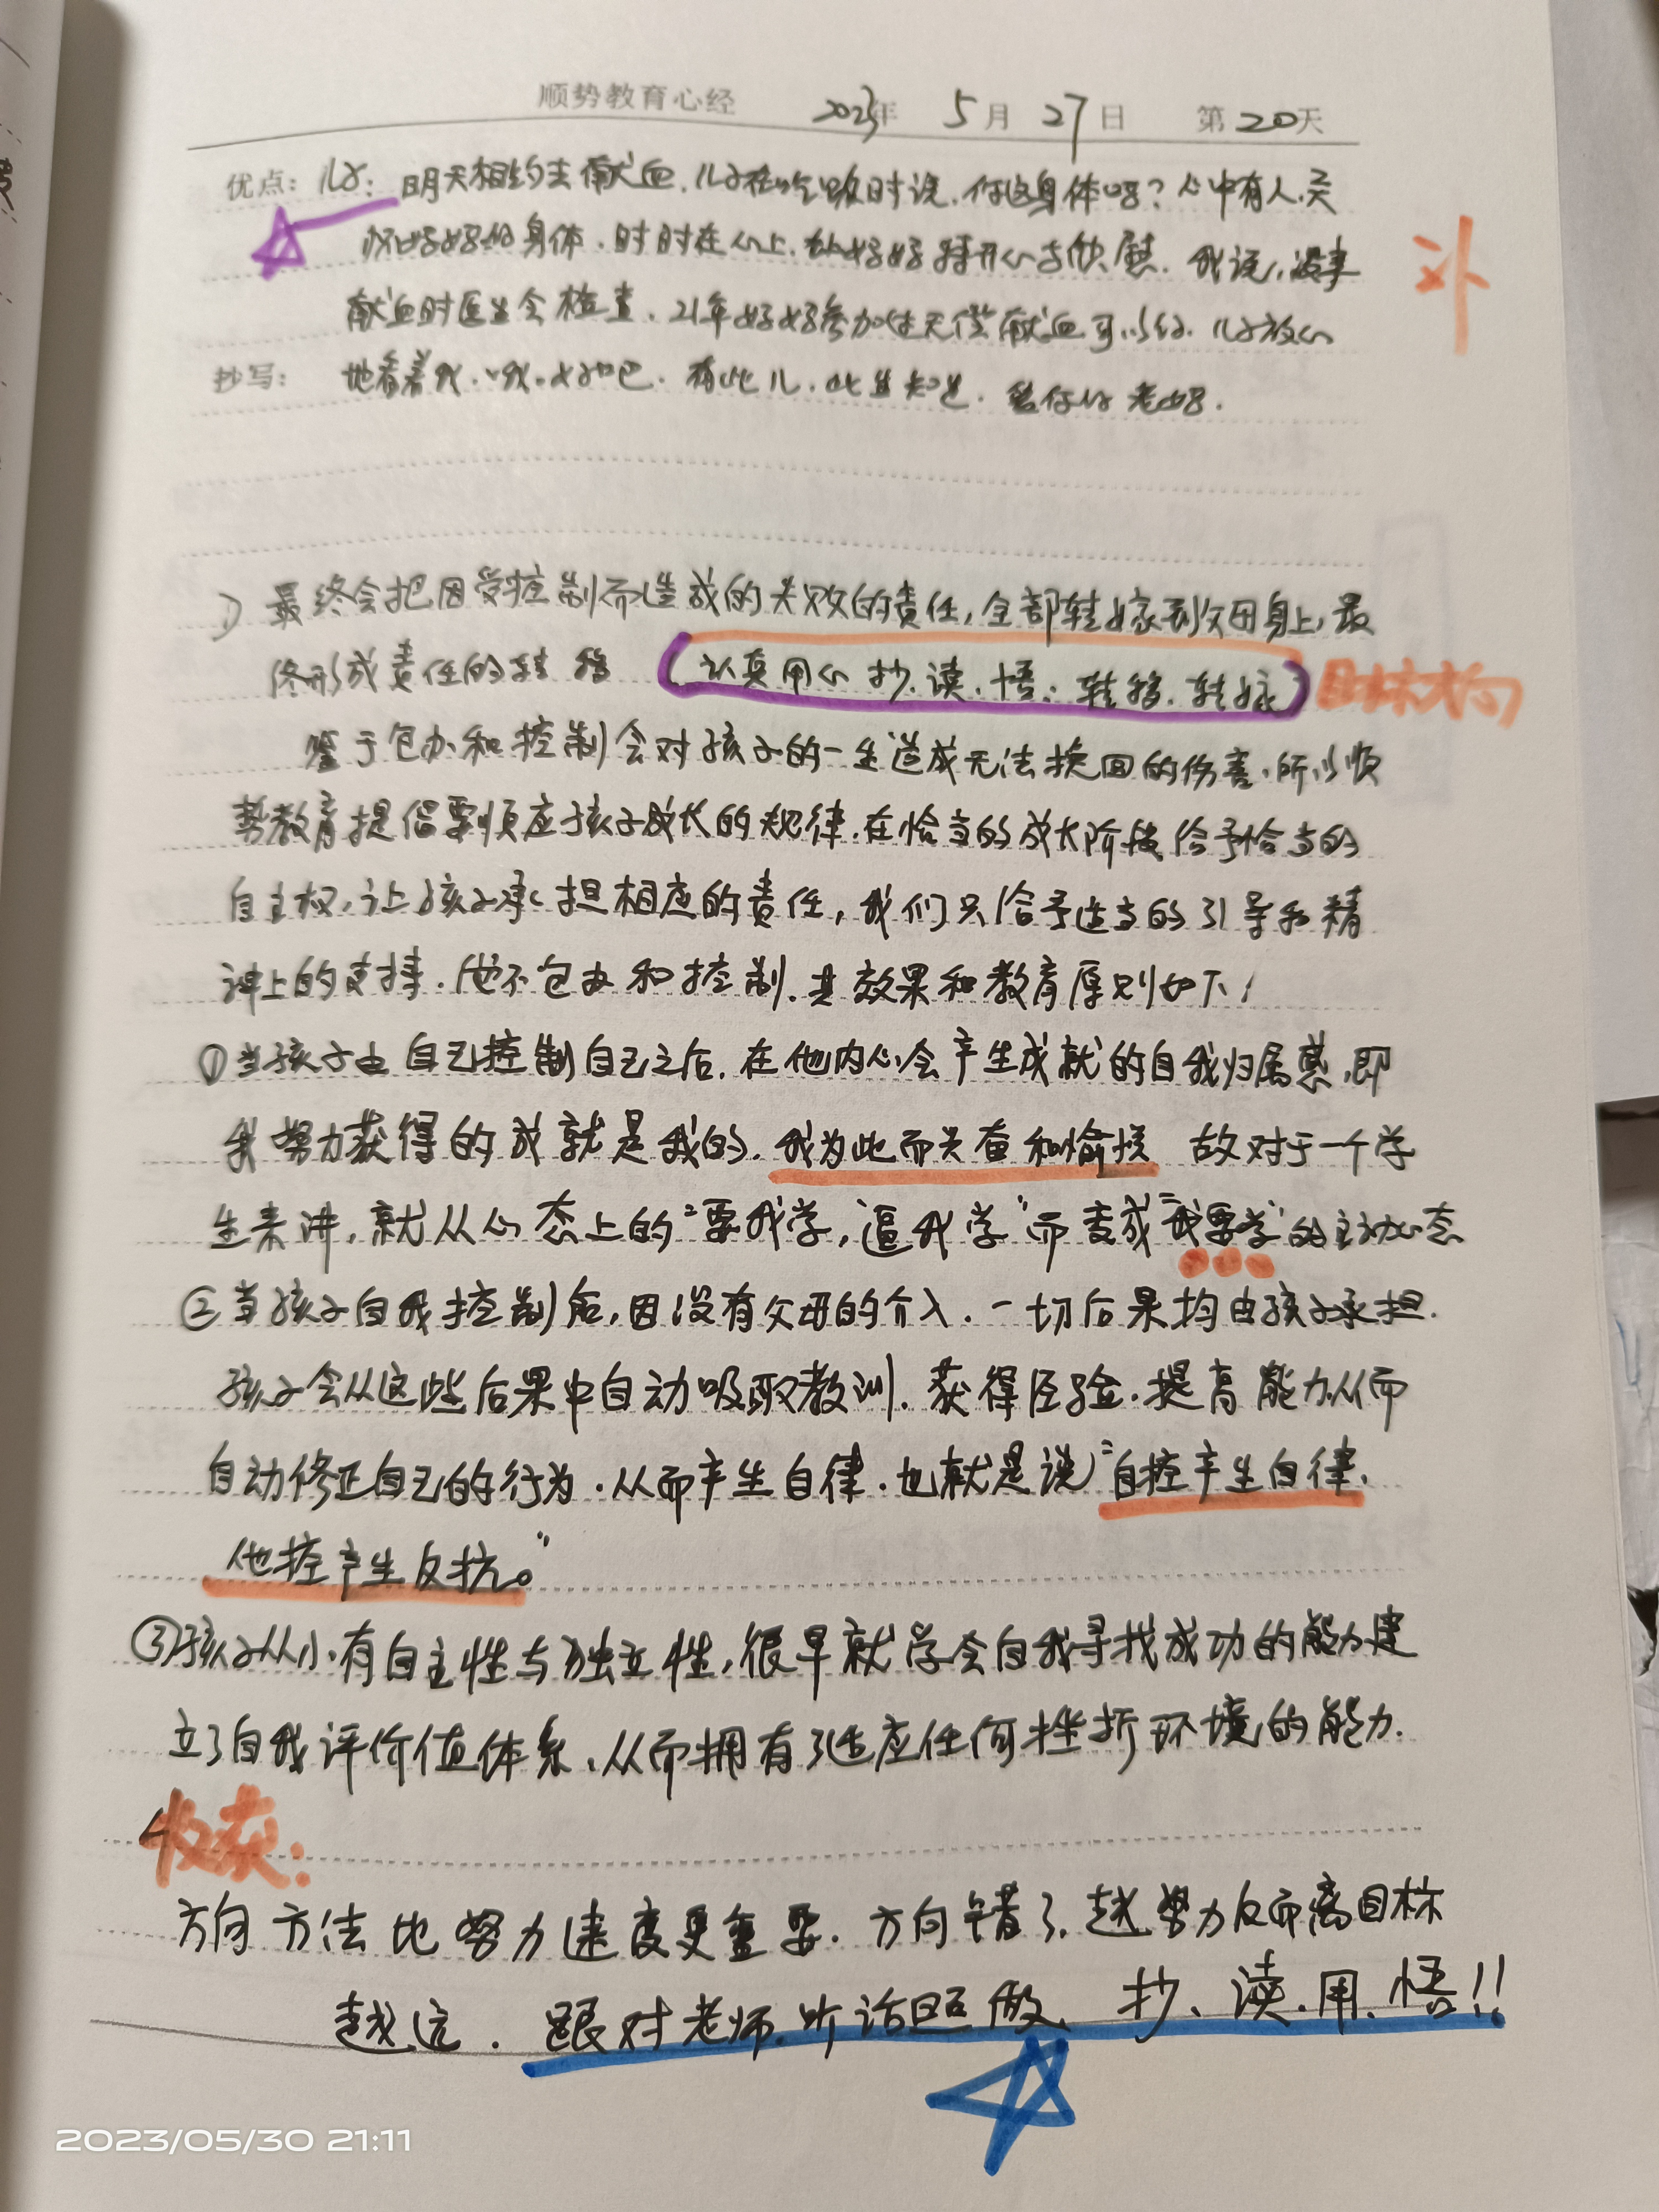 顺势教育心经 2023年 5月27日 第20天
优点: 儿子: 明天相约去献血. 儿子在吃饭时说. 你这身体吗? 心中有人. 关
身体. 时时在心上. 好好特开心与欣慰. 我说. 没事
补
献血时医生会检查. 21年好好参加过无偿献血可以的. 儿子放心
抄写: 地看着我. 哦. 好吧. 有此儿. 此生知足. 老妈.
1) 最终会把因受控制而造成的失败的责任, 全部转嫁到父母身上, 最
终形成责任的转移 (认真用心 抄. 读. 悟: 转移. 转嫁) 目标方向
鉴于包办和控制会对孩子的一生造成无法挽回的伤害. 所以顺
势教育提倡要顺应孩子成长的规律. 在恰当的成长阶段给予恰当的
自主权, 让孩子承担相应的责任, 我们只给予适当的引导和精
神上的支持. 但不包办和控制. 其效果和教育原则如下:
①当孩子由自己控制自己之后. 在他内心会产生成就的自我归属感, 即
我努力获得的成就是我的. 我为此而兴奋和愉悦 故对于一个学
生来讲, 就从心态上的“要我学, 逼我学”而变成“我要学”的主动心态
②当孩子自我控制后, 因没有父母的介入. 一切后果均由孩子承担.
孩子会从这些后果中自动吸取教训. 获得经验. 提高能力从而
自动修正自己的行为. 从而产生自律. 也就是说“自控产生自律.
他控产生反抗。”
③孩子从小有自主性与独立性, 很早就学会自我寻找成功的能力建
立了自我评价值体系. 从而拥有了适应任何挫折环境的能力.
收获:
方向方法比努力速度更重要. 方向错了, 越努力反而离目标
越远. 跟对老师. 听话照做. 抄. 读. 用. 悟!!
2023/05/30 21:11